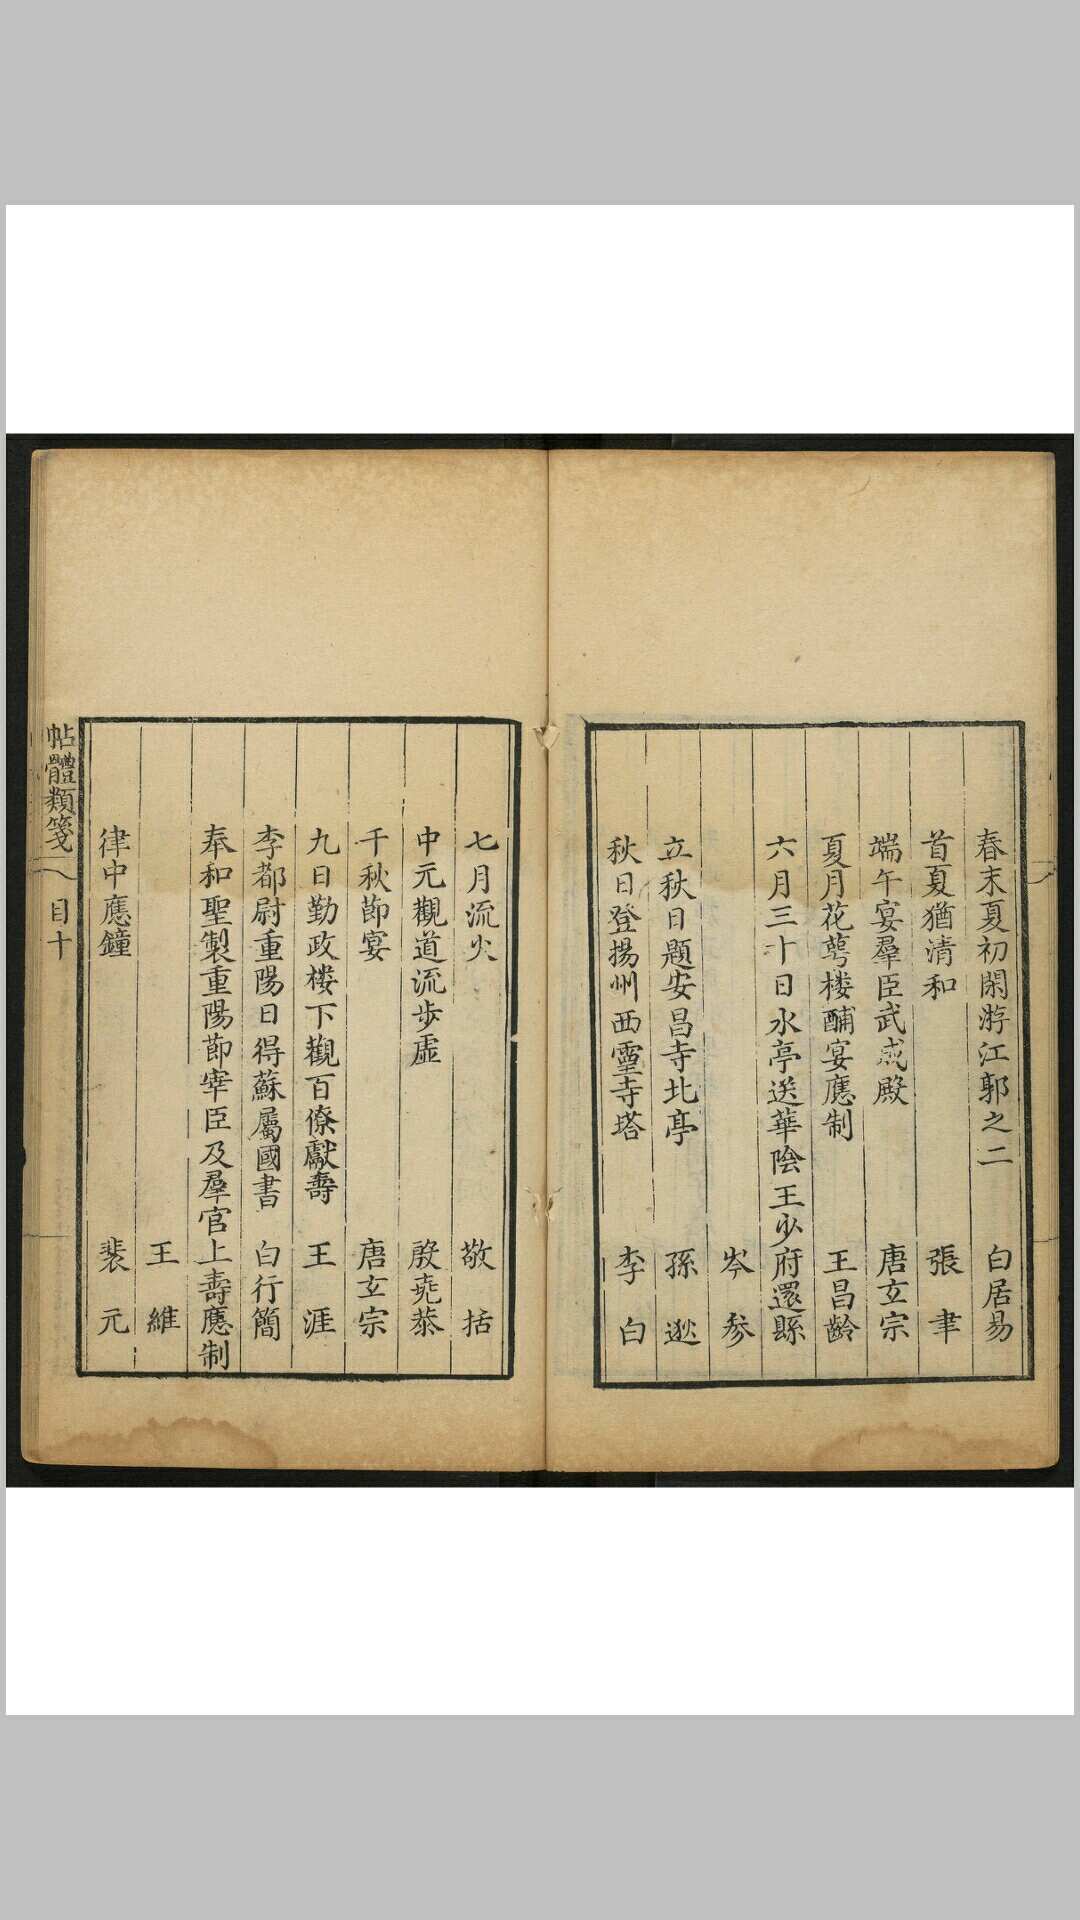 春末夏初閑游江郭之二 白居易
首夏猶清和 張聿
端午宴羣臣武成殿 唐玄宗
夏月花萼楼酺宴應制 王昌齡
六月三十日水亭送華陰王少府還縣
岑參
立秋日題安昌寺北亭 孫逖
秋日登揚州西靈寺塔 李白
七月流火 敬括
中元觀道流步虛 殷堯恭
千秋節宴 唐玄宗
九日勤政楼下觀百僚獻壽 王涯
李都尉重陽日得蘇屬國書 白行簡
奉和聖製重陽節宰臣及羣官上壽應制
王維
律中應鐘 裴元
帖體類箋 目十